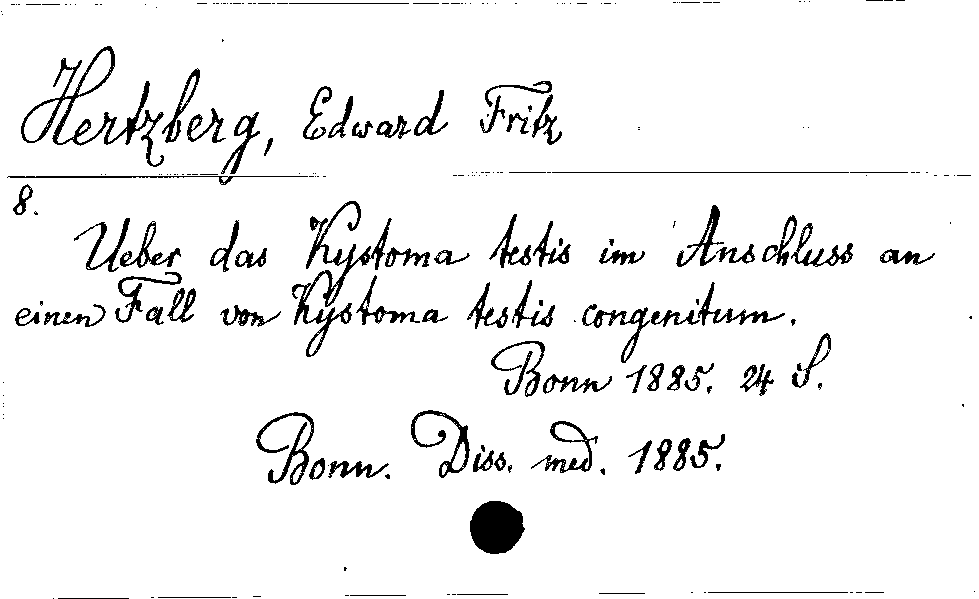 Hertzberg, Edward Fritz
8.
Ueber das Kystoma testis im Anschluss an
einen Fall von Kystoma testis congenitum.
Bonn 1885. 24 S.
Bonn. Diss. med. 1885.